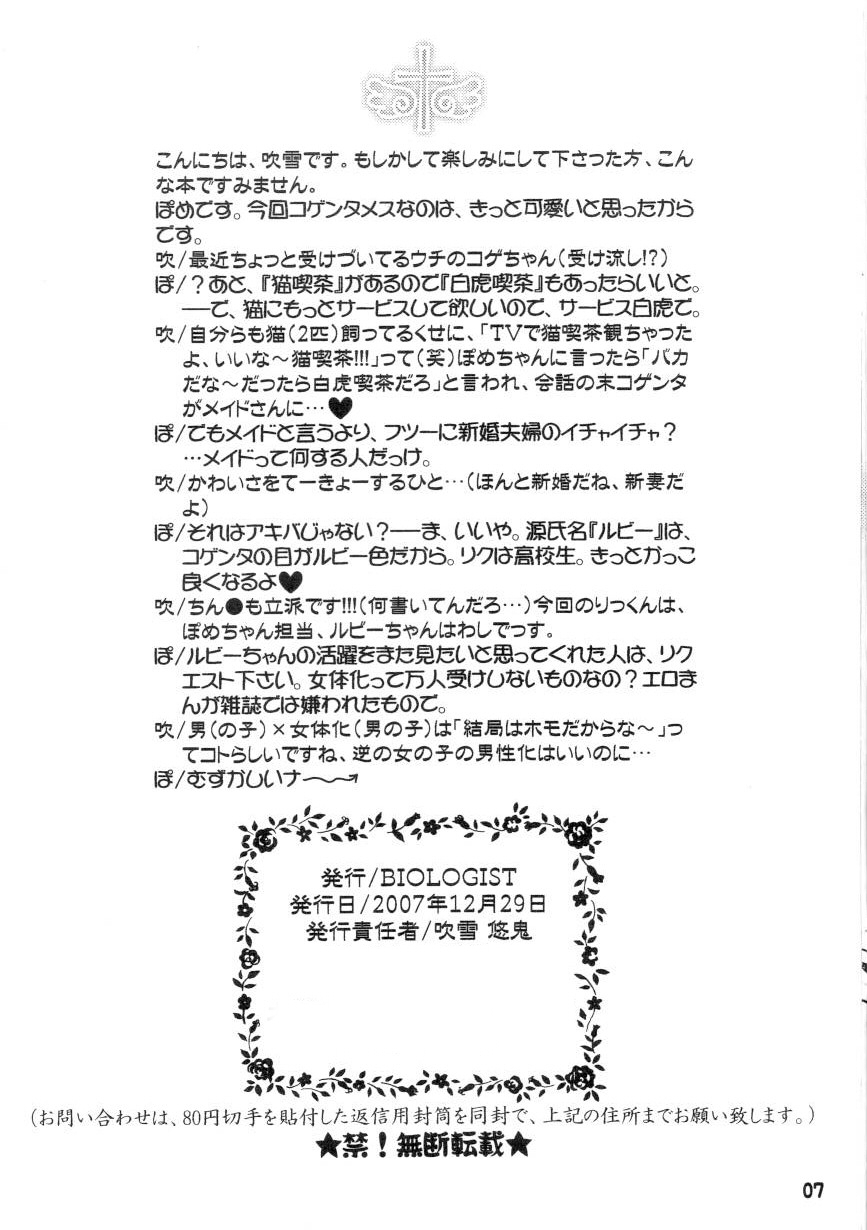 こんにちは、吹雪です。もしかして楽しみにして下さった方、こん
な本ですみません。
ぽめです。今回コゲンタメスなのは、きっと可愛いと思ったから
です。
吹/最近ちょっと受けづいてるウチのコゲちゃん(受け流し!?)
ぽ/?あと、『猫喫茶』があるので『白虎喫茶』もあったらいいと。
──で、猫にもっとサービスして欲しいので、サービス白虎で。
吹/自分らも猫(2匹)飼ってるくせに、「TVで猫喫茶観ちゃった
よ、いいな～猫喫茶!!!」って(笑)ぽめちゃんに言ったら「バカ
だな～だったら白虎喫茶だろ」と言われ、会話の末コゲンタ
がメイドさんに…♥
ぽ/でもメイドと言うより、フツーに新婚夫婦のイチャイチャ?
…メイドって何する人だっけ。
吹/かわいさをてーきょーするひと…(ほんと新婚だね、新妻だ
よ)
ぽ/それはアキバじゃない?──ま、いいや。源氏名『ルビー』は、
コゲンタの目がルビー色だから。リクは高校生。きっとかっこ
良くなるよ♥
吹/ちん●も立派です!!!(何書いてんだろ…)今回のりっくんは、
ぽめちゃん担当、ルビーちゃんはわしでっす。
ぽ/ルビーちゃんの活躍をまた見たいと思ってくれた人は、リク
エスト下さい。女体化って万人受けしないものなの?エロま
んが雑誌では嫌われたもので。
吹/男(の子)×女体化(男の子)は「結局はホモだからな～」っ
てコトらしいですね、逆の女の子の男性化はいいのに…
ぽ/むずかしいナ～～→
発行/BIOLOGIST
発行日/2007年12月29日
発行責任者/吹雪 悠鬼
(お問い合わせは、80円切手を貼付した返信用封筒を同封で、上記の住所までお願い致します。)
★禁!無断転載★
07